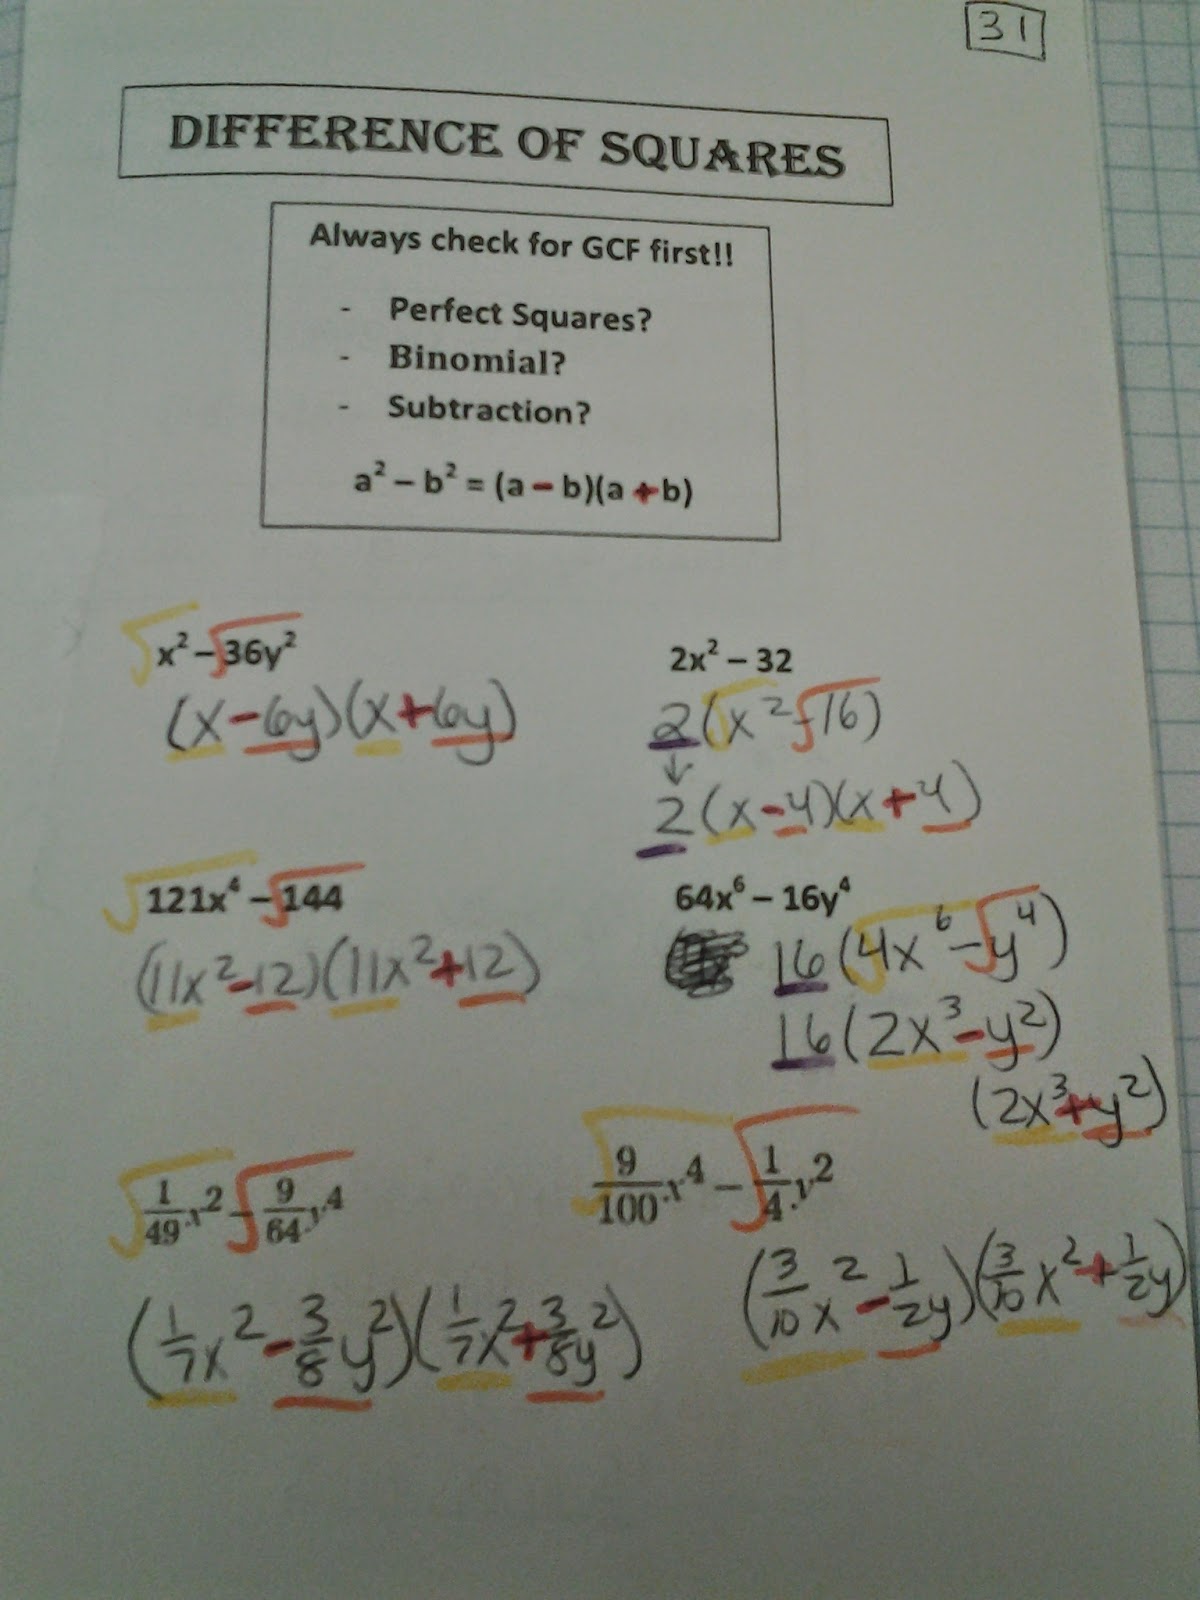 31
DIFFERENCE OF SQUARES
Always check for GCF first!!
- Perfect Squares?
- Binomial?
- Subtraction?
a² – b² = (a - b)(a + b)
√x² – √36y²
(x - 6y)(x + 6y)
2x² – 32
2(√x² - √16)
2(x - 4)(x + 4)
√121x⁴ – √144
(11x² - 12)(11x² + 12)
64x⁶ – 16y⁴
16(√4x⁶ - √y⁴)
16(2x³ - y²)
(2x³ + y²)
√1/49 x² - √9/64 y⁴
(1/7x² - 3/8y²)(1/7x² + 3/8y²)
√9/100 x⁴ – √1/4 y²
(3/10x² - 1/2y)(3/10x² + 1/2y)